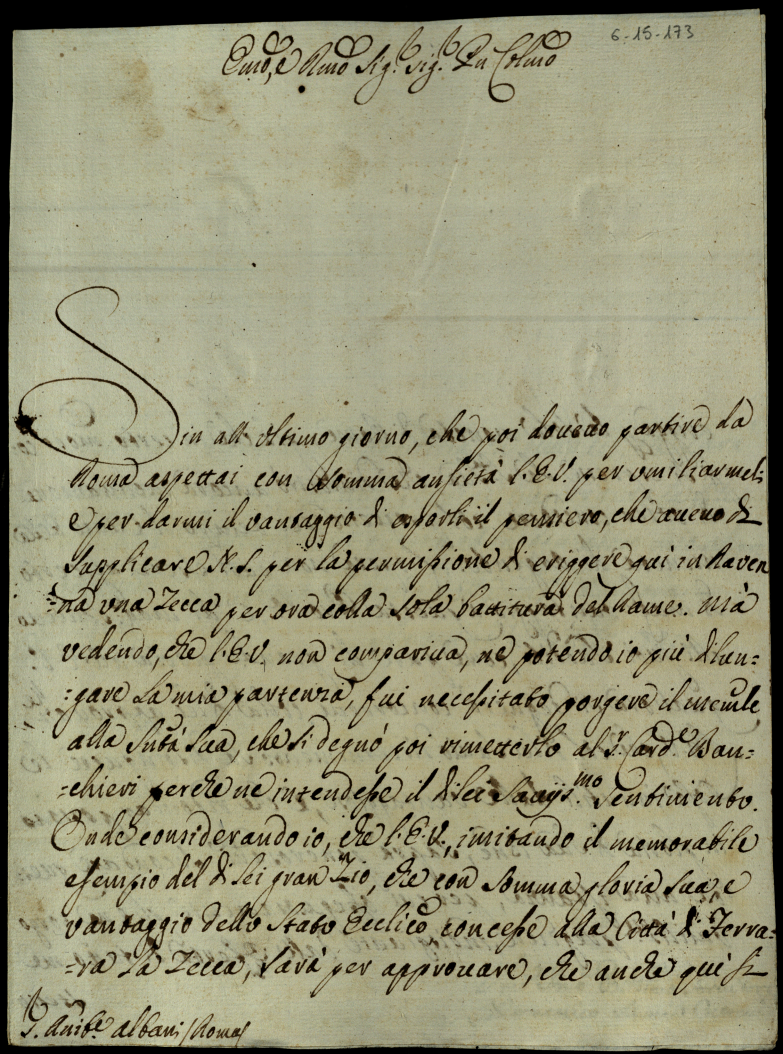 6-15-173
Emo, e Rmo Sig.r Sig.r Pn Colmo
Sin all' vltimo giorno, che poi doueuo partire da
Roma aspettai con somma ansietà l'E.V. per vmiliarmeli
e per darmi il vantaggio di esporli il pensiero, che aueuo di
supplicare N.S. per la permissione di eriggere quì in Raven
=na vna Zecca per ora colla sola battitura del Rame. Mà
vedendo, che l'E.V. non compariua, ne potendo io più dilun=
=gare la mia partenza, fui necessitato porgere il memle
alla Sntà Sua, che si degnò poi rimetterlo al Sr. Card.e Ban=
=chieri perche ne intendesse il di lei Saviis.mo Sentimento.
Onde considerando io, che l'E.V., imitando il memorabile
esempio del di lei gran Zio, che con somma gloria sua, e
vantaggio dello Stato Ecclico, concesse alla Città di Ferra=
=ra la Zecca, sarà per approuare, che anche quì si
S. Anib.e Albani / Roma /